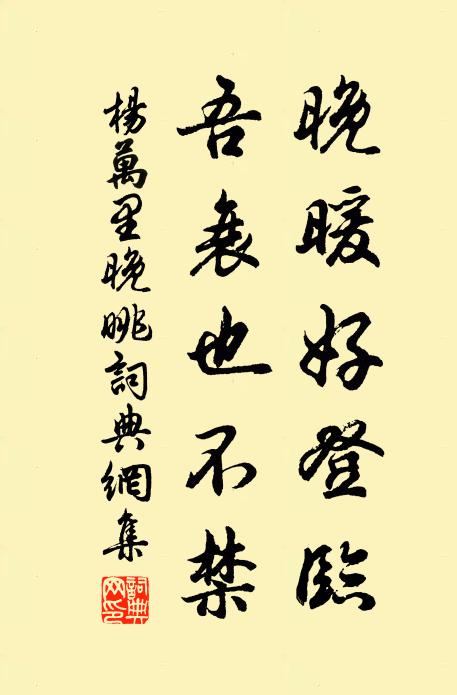 晚暖好登臨
吾衰也不禁
楊萬里晚眺詞典網集
詞典網印